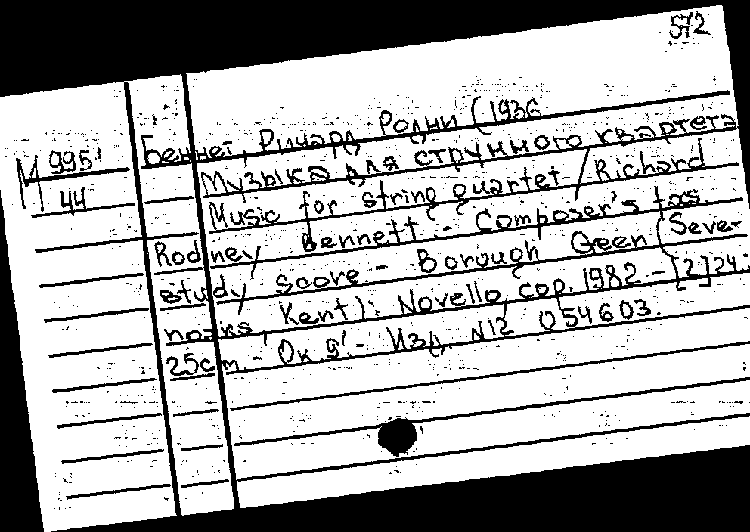 572
М 995
44
Беннет, Ричард Родни (1936
Музыка для струнного квартета
Music for string quartet / Richard
Rodney Bennett. - Composer's facs.
study score. - Borough Green (Seve-
noaks, Kent): Novello, cop. 1982. - [2] 24;
25cm. - Ок. 9'. - Изд. N12 054603.